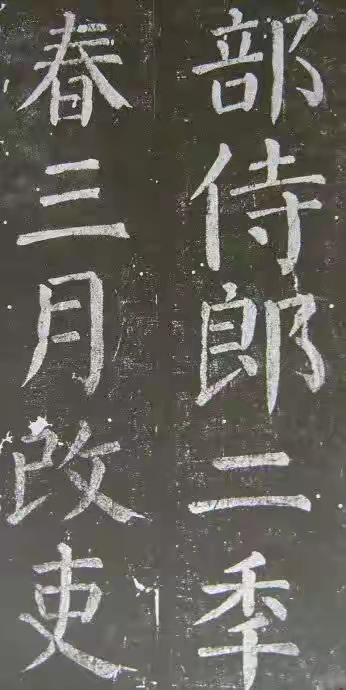 部侍郎二秊
春三月改吏